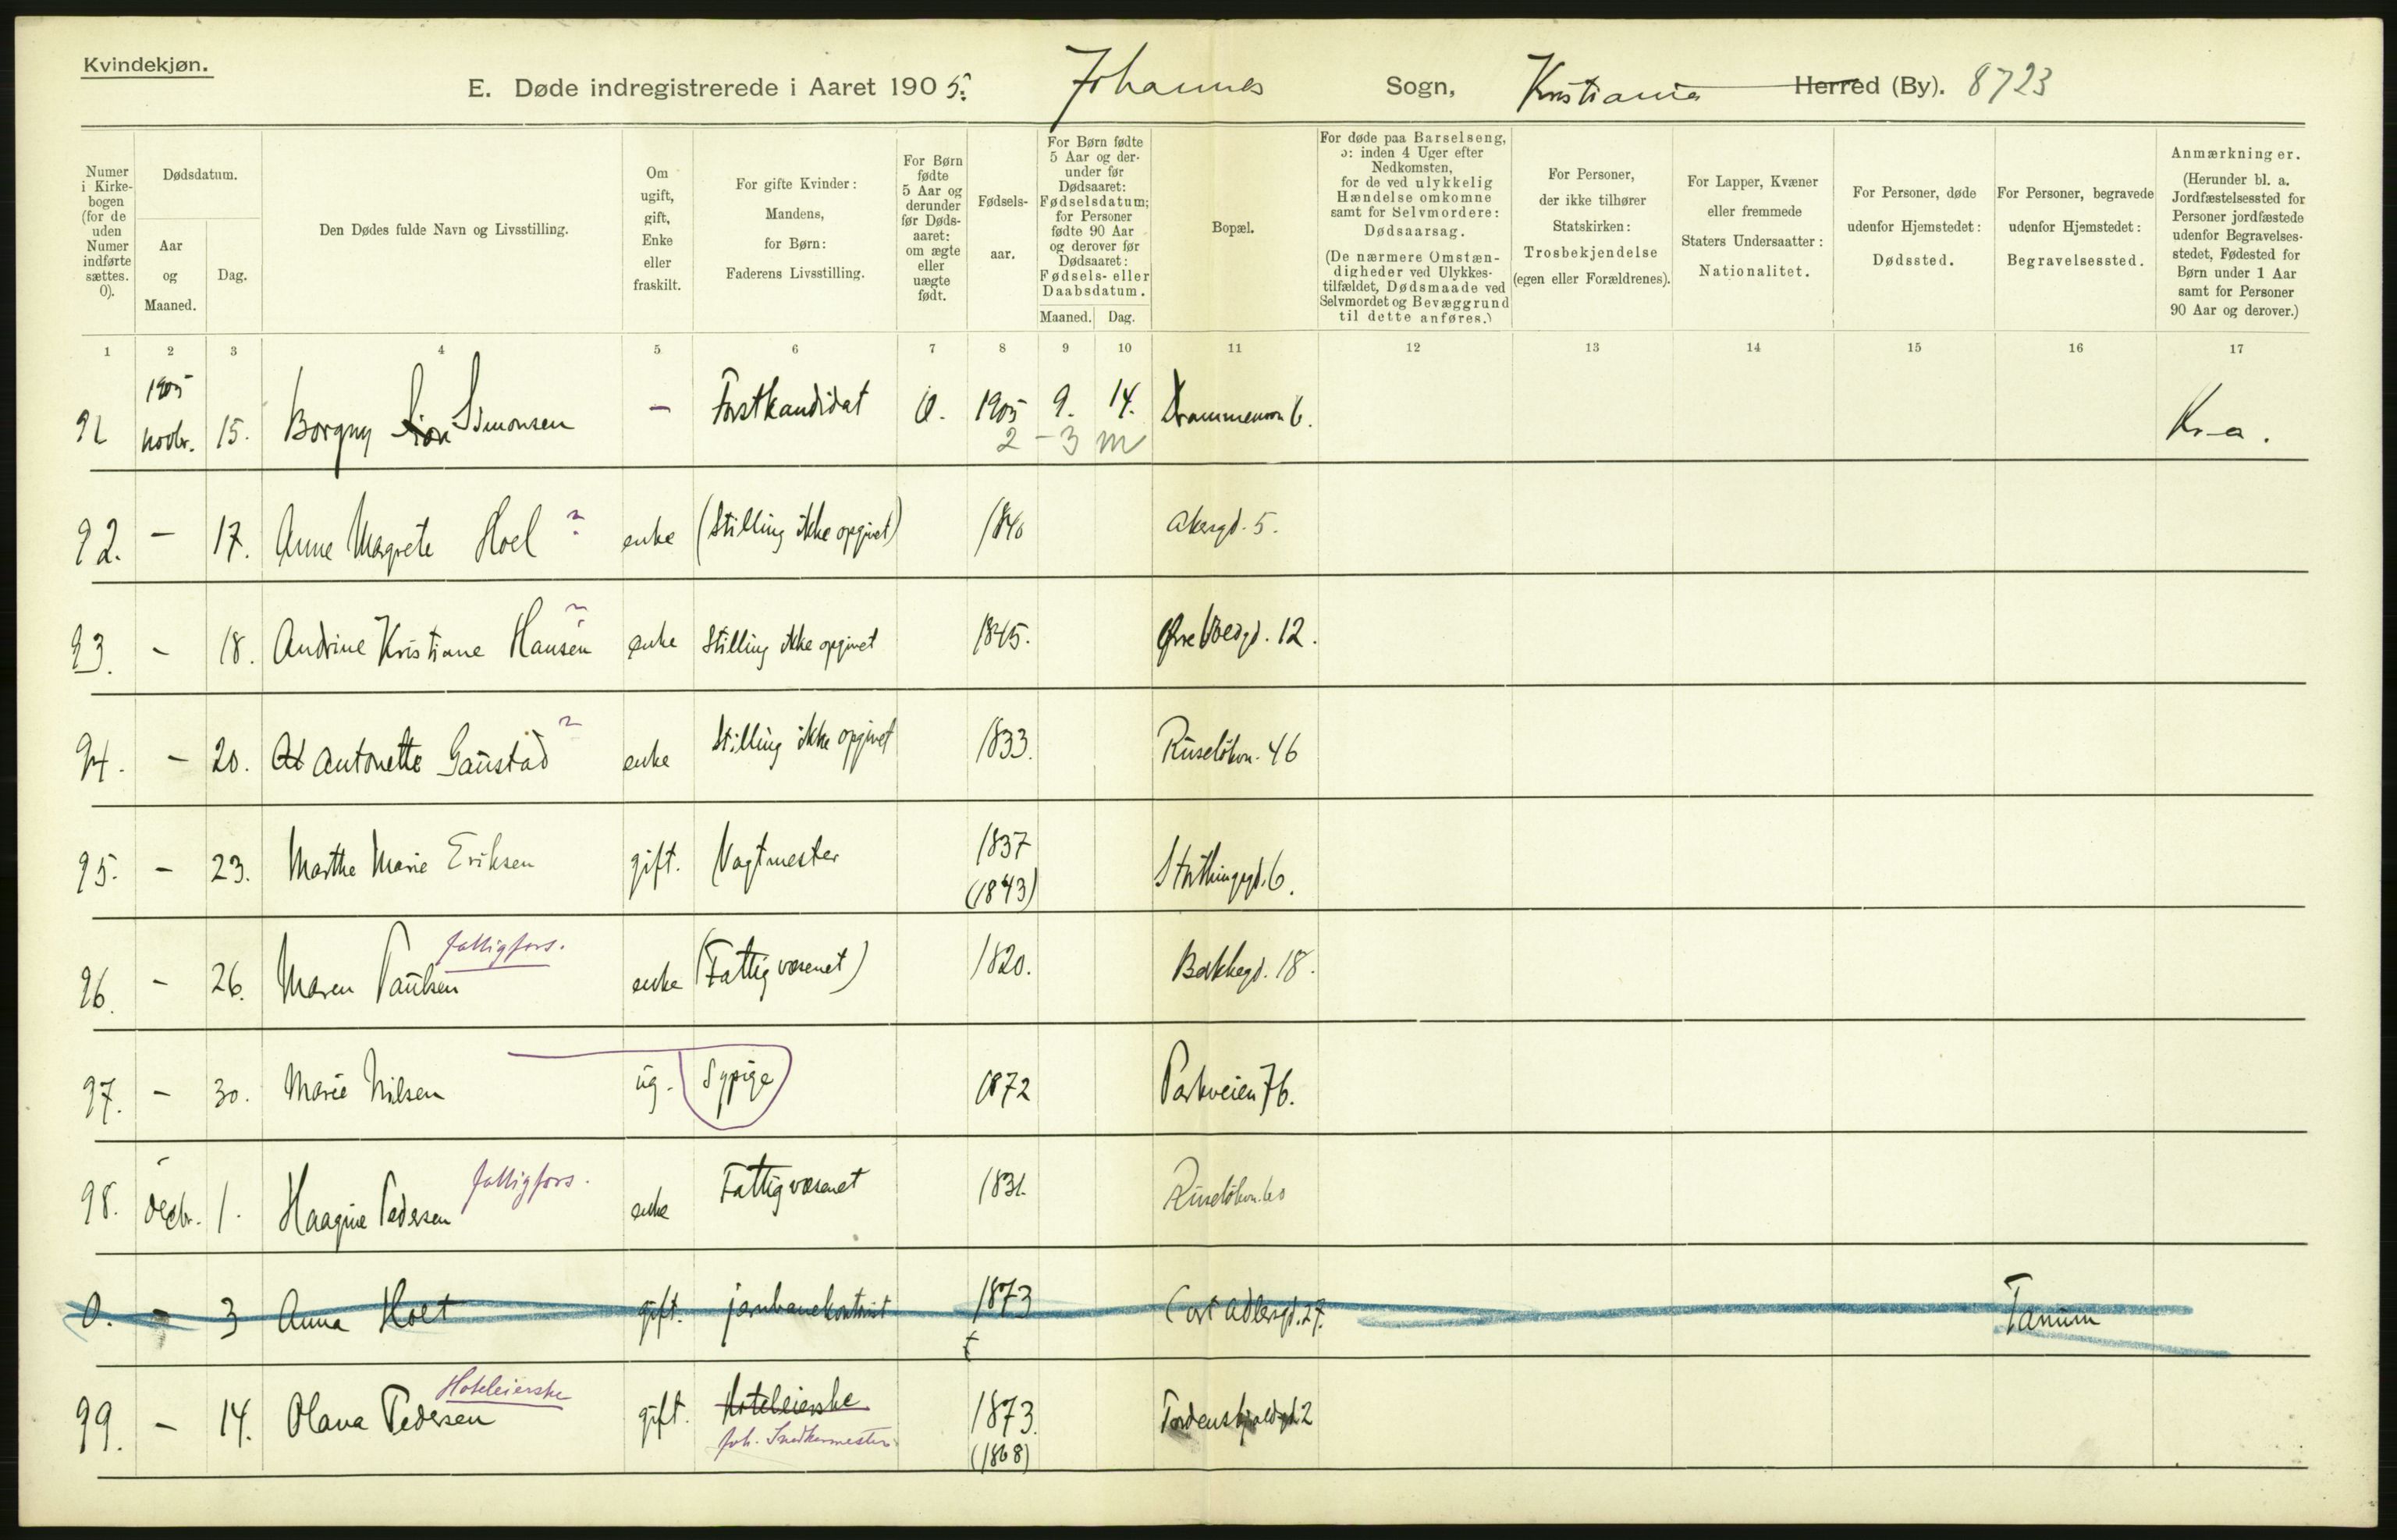 Kvindekjøn.
E. Døde indregistrerede i Aaret 1905. Johannes Sogn, Kristiania Herred (By). 8723
Numer i Kirkebogen (for de uden Numer indførte sættes. 0).
Dødsdatum.
Aar og Maaned.
Dag.
Den Dødes fulde Navn og Livsstilling.
Om ugift, gift, Enke eller fraskilt.
For gifte Kvinder: Mandens, for Børn: Faderens Livsstilling.
For Børn fødte 5 Aar og derunder før Dødsaaret: om ægte eller uægte født.
Fødselsaar.
For Børn fødte 5 Aar og derunder før Dødsaaret: Fødselsdatum; for Personer fødte 90 Aar og derover før Dødsaaret: Fødsels- eller Daabsdatum.
Maaned. Dag.
Bopæl.
For døde paa Barselseng, ɔ: inden 4 Uger efter Nedkomsten, for de ved ulykkelig Hændelse omkomne samt for Selvmordere: Dødsaarsag.
(De nærmere Omstændigheder ved Ulykkestilfældet, Dødsmaade ved Selvmordet og Bevæggrund til dette anføres.)
For Personer, der ikke tilhører Statskirken: Trosbekjendelse (egen eller Forældrenes).
For Lapper, Kvæner eller fremmede Staters Undersaatter: Nationalitet.
For Personer, døde udenfor Hjemstedet: Dødssted.
For Personer, begravede udenfor Hjemstedet: Begravelsessted.
Anmærkninger.
(Herunder bl. a. Jordfæstelsessted for Personer jordfæstede udenfor Begravelsesstedet, Fødested for Børn under 1 Aar samt for Personer 90 Aar og derover.)
1 2 3 4 5 6 7 8 9 10 11 12 13 14 15 16 17
91 1905 novbr. 15. Borgny Simonsen - Forstkandidat 1905 9. 14. Drammensvn 6. Kr-a.
2 - 3 m
92. - 17. Anne Margrete Hoel enke (Stilling ikke opgivet) 1840 Akersgd. 5.
93. - 18. Andrine Kristiane Hansen enke Stilling ikke opgivet 1845. Øvre Voldgd. 12.
94. - 20. Antonette Gaustad enke Stilling ikke opgivet 1833. Ruseløkvn. 46
95. - 23. Marthe Marie Eriksen gift. Vagtmester 1837 (1843) Storthingsgd. 6.
96. - 26. Maren Paulsen fattigfors. enke (Fattigvæsenet) 1820. Bakkegd. 18.
97. - 30. Marie Nilsen ug. Sypige 1872 Parkveien 76.
98. Decbr. 1. Haagine Pedersen fattigfors. enke Fattigvæsenet 1831. Ruseløkvn. 60
0. - 3 Anna Holt gift. jernbanekontorist 1873 Cort Adlersgd. 27. Tanum
99. - 14. Olava Pedersen Hoteleierske gift. Hoteleierske 1873. (1868) Tordenskjoldsgd 2
Snedkermester